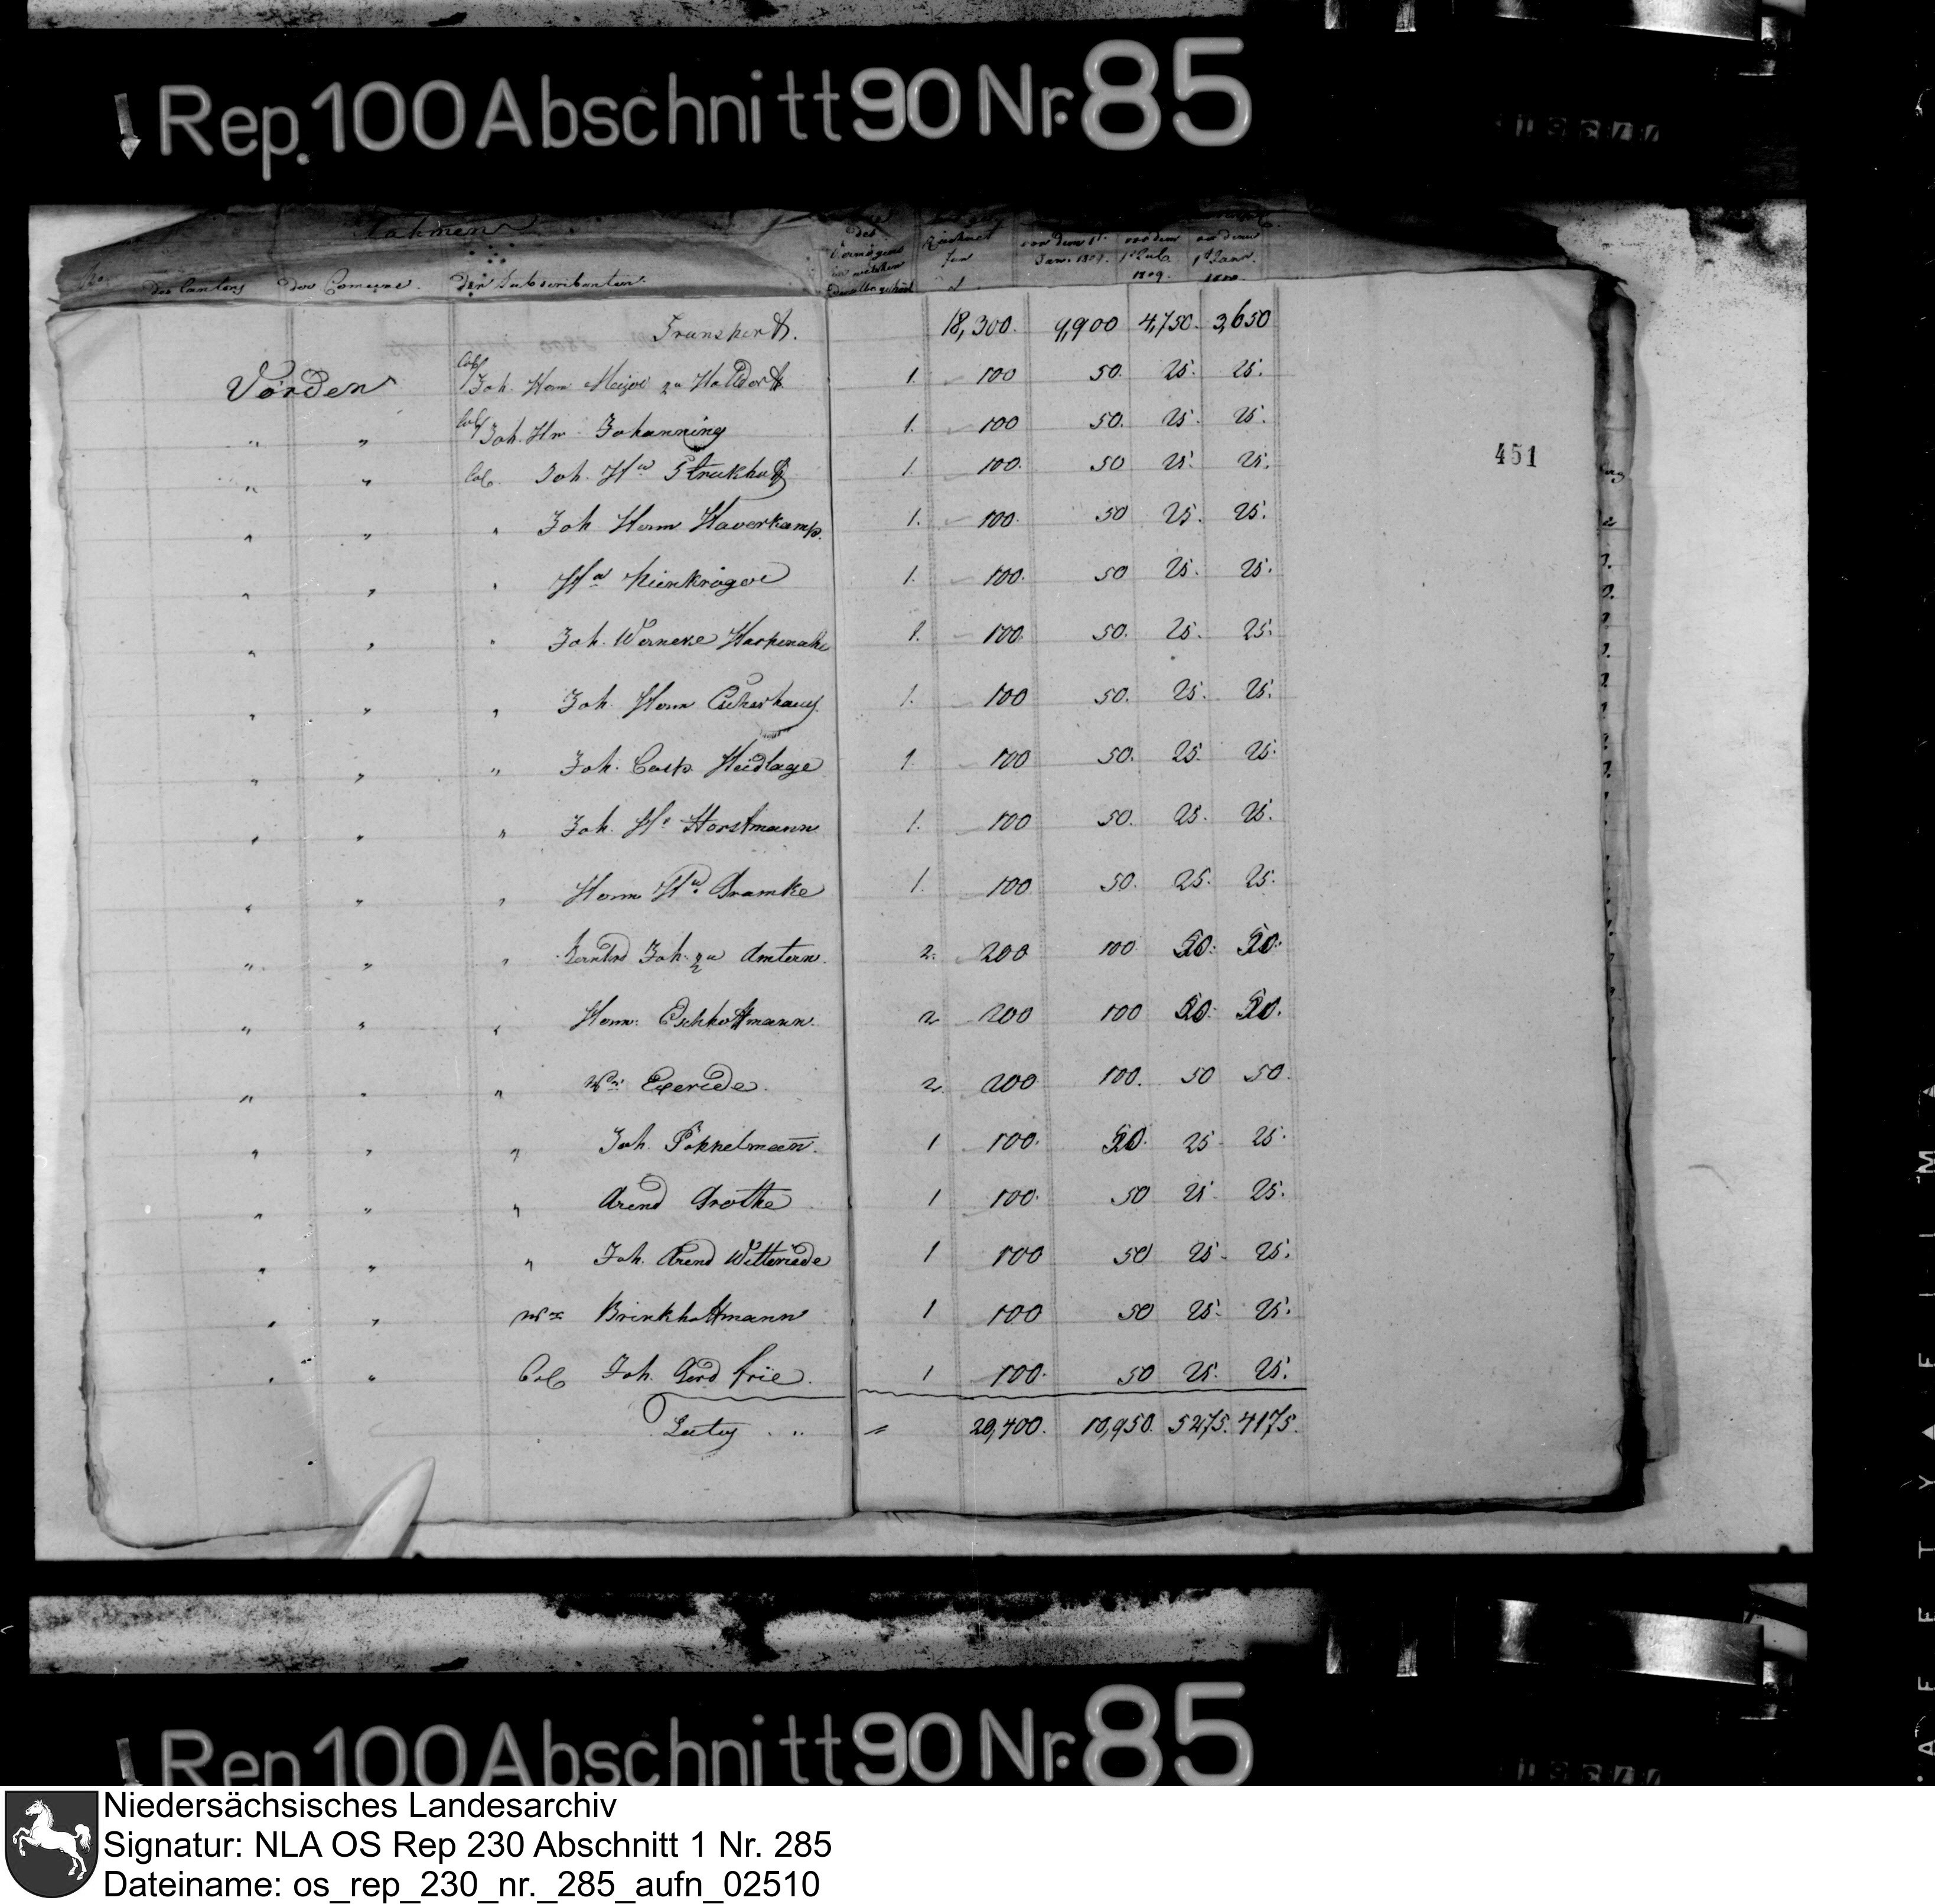 Rep. 100 Abschnitt 90 Nr. 85
Nahmen
des Cantons der Comune. der Subscribenten. des Vermögens zu welchen derselbe gehört vor dem 1t. Jan. 1809. vor dem 1t Jul. 1809. vor dem 1t Janr. 1810.
Transport. 18,300. 9,900 4,750. 3,650
Vörden Col. Joh. Herm Meijer zu Holtdorf 1. 100 50. 25. 25.
" " Col. Joh. Hr. Johanning 1. 100 50. 25. 25.
451
" " Col. Joh. Hr Strukhof 1. 100. 50 25. 25.
" " " Joh Herm Haverkamp. 1. 100. 50 25. 25.
" " " Hr Nienkröger 1. 100. 50 25. 25.
" " " Joh. Werneke 1. 100. 50. 25. 25.
" " " Joh. Herm 1. 100 50. 25. 25.
" " " Joh. Casp. Heidlage 1. 100 50. 25. 25.
" " " Joh. Hr Horstmann 1. 100 50. 25. 25.
" " " Herm Hr. Dramke 1. 100 50. 25. 25.
" " " Joh. zu Amtern. 2. 200 100 50. 50.
" " " Herm. Eschhoffmann. 2 200 100 50. 50.
" " " Wwe. Exeriede. 2. 200 100. 50 50.
" " " Joh. Pöppelmann. 1 100. 50. 25 25.
" " " Arend Grothe 1 100. 50 25 25.
" " " Joh. Arend Witteriede 1 100 50 25 25.
" " Wwe Brinkhoffmann 1 100 50 25. 25.
" " Col Joh. Gerd Frie. 1 100. 50 25. 25.
Latus . . " 20,400. 10,950. 5275. 4175.
Rep. 100 Abschnitt 90 Nr. 85
SAFETY FILM
Niedersächsisches Landesarchiv
Signatur: NLA OS Rep 230 Abschnitt 1 Nr. 285
Dateiname: os_rep_230_nr._285_aufn_02510